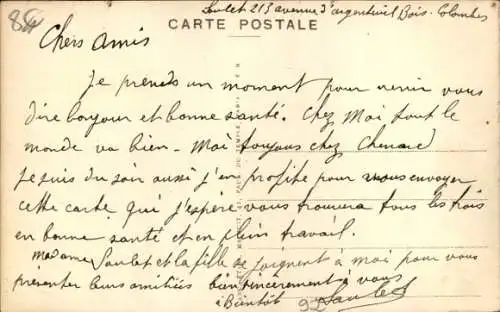 Soulet 213 avenue d'argenteuil Bois-Colombes
CARTE POSTALE
Chers amis
Je prends un moment pour venir vous
dire bonjour et bonne santé. Chez Moi tout le
monde va bien - Moi toujours chez Chenard
Je suis du soir aussi j'en profite pour vous envoyer
cette carte qui j'espère vous trouvera tous les trois
en bonne santé et en plein travail.
Madame Soulet et la fille se joignent à moi pour vous
présenter leurs amitiés bien sincèrement à vous
à Bientôt Soulet